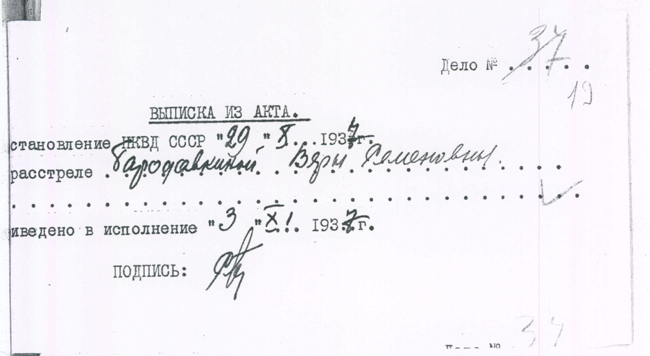 Дело № . 37 . .
19
ВЫПИСКА ИЗ АКТА.
становление НКВД СССР "29 "X...1937г.
расстреле . Бародавкиной Веры Семеновны.
иведено в исполнение "3 "XI. 1937г.
ПОДПИСЬ:
Дело № 37